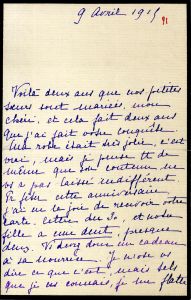 9 Avril 1915
91
Voilà deux ans que nos petites
sœurs sont mariées, mon
chéri, et cela fait deux ans
que j'ai fait votre conquête.
Ma robe était très jolie, c'est
vrai, mais je pense tt de
même que son contenu ne
vs a pas laissé indifférent.
cet anniversaire,
j'ai eu la joie de recevoir votre
carte, lettre du 30, et notre
fille a une dent, presque
deux. Vs devez donc un cadeau
à sa nourrice. Je n'ose vs
dire ce que c'est, mais tels
que je vs connais, je me flatte